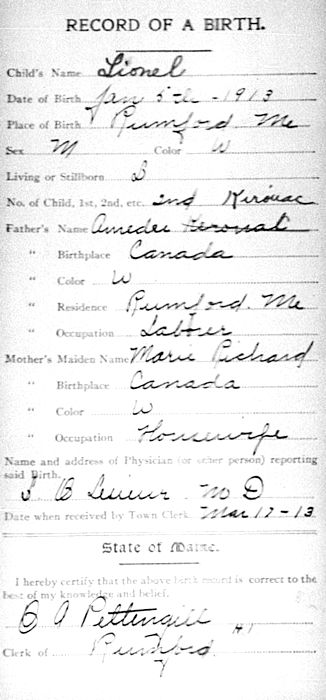 RECORD OF A BIRTH.
Child's Name Lionel
Date of Birth Jan 5th - 1913
Place of Birth Rumford Me
Sex M Color W
Living or Stillborn
No. of Child, 1st, 2nd, etc. 2nd Kirouac
Father's Name Amedee
" Birthplace Canada
" Color W
" Residence Rumford. Me
" Occupation Laborer
Mother's Maiden Name Marie Richard
" Birthplace Canada
" Color W
" Occupation Housewife
Name and address of Physician (or other person) reporting
said Birth.
B M D
Date when received by Town Clerk, Mar 17-13
State of Maine.
I hereby certify that the above birth record is correct to the
best of my knowledge and belief.
A Pettengill
Clerk of Rumford